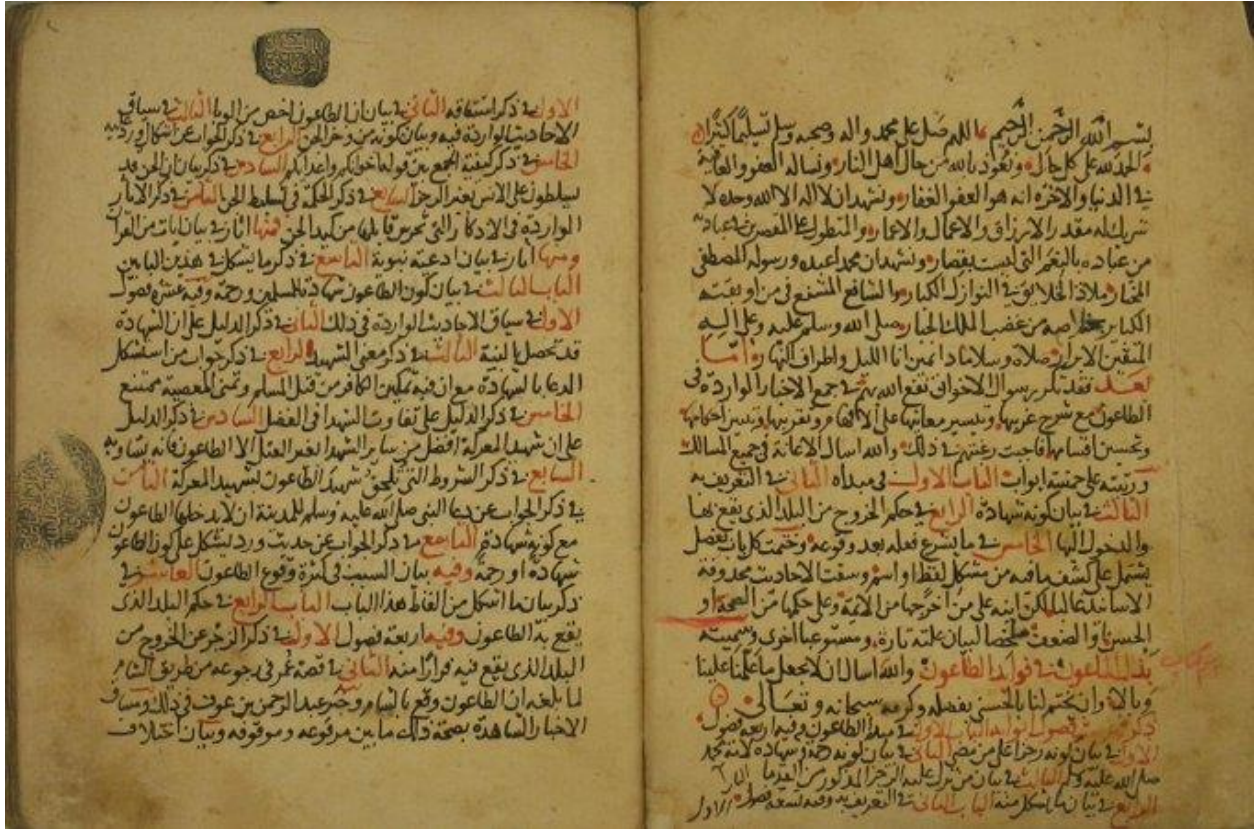 بسم الله الرحمن الرحيم اللهم صل على محمد واله وصحبه وسلم تسليما كثيرا
الحمد لله على كل حال ونعوذ بالله من حال اهل النار ونساله العفو والعافية
في الدنيا والاخرة انه هو العفو الغفار ونشهد ان لا اله الا الله وحده لا
شريك له مقدر الارزاق والاعمال والاعمار والمتطول على المقصرين
من عباده بالنعم التي ليست بقصار ونشهد ان محمدا عبده ورسوله المصطفى
المختار وملاذ الخلايق في النوازل الكبار والشافع المشفع في من اوبقته
الكباير من غضب الملك الجبار صلى الله وسلم عليه وعلى اله
المتقين الابرار صلاة وسلاما دايمين انا الليل واطراف النهار اما
بعد فقد تكرر سوال الاخوان نفع الله بهم في جمع الاخبار الواردة في
الطاعون مع شرح غريبها وتيسير معانيها على الافهام وتقريبها وتبيين احكامها
وتحسين اقسامها فاجبت رغبتهم في ذلك والله اسال الاعانة في جميع المسالك
ورتبته على خمسة ابواب الباب الاول في مبداه الثاني في التعريف به
الثالث في بيان كونه شهادة الرابع في حكم الخروج من البلد الذي يقع بها
والدخول اليها الخامس في ما يشرع فعله بعد وقوعه وختمت كل باب بفصل
يشتمل على كشف ما فيه من مشكل لفظ او اسم وسقت الاحاديث محذوفة
الاسانيد غالبا لكن ابنه على من اخرجها من الايمة وعلى حكمها من الصحة او
الحسن او الضعف ملخصا لبيان علته تارة ومستوعبا اخرى وسميته
بذل الماعون في فوايد الطاعون والله اسال ان لا يجعل ما علمنا علينا
وبالا وان يختم لنا بالحسنى بفضله وكرمه سبحانه وتعالى
ذكر فصول ابوابه الباب الاول في مبدا الطاعون وفيه اربعة فصول
الاول في بيان كونه رجزا على من مضى الثاني في بيان كونه رحمة وشهادة لامة محمد
صلى الله عليه وسلم الثالث في بيان من نزل عليه الرجز المذكور من
الرابع في بيان ما يشكل منه الباب الثاني في التعريف به وفيه تسعة فصول الاول
الاول في ذكر اشتقاقه الثاني في بيان ان الطاعون اخص من الوبا الثالث في سياق
الاحاديث الواردة فيه وبيان كونه من وخز الجن الرابع في ذكر الجواب عن اشكال ورد فيه
الخامس في ذكر كيفية الجمع بين قوله اخوانكم واعدايكم السادس في ذكر بيان ان الجن قد
يسلطون على الانس بغير الوخز السابع في ذكر الحكمة في تسليط الجن الثامن في ذكر الاثار
الواردة في الاذكار التي تحرس قايلها من كيد الجن فمنها اثار في بيان ايات من القرآن
ومنها اثار في بيان ادعية نبوية التاسع في ذكر ما يشكل في هذين البابين
الباب الثالث في بيان كون الطاعون شهادة للمسلمين ورحمة وفيه عشرة فصول
الاول في سياق الاحاديث الواردة في ذلك الثاني في ذكر الدليل على ان الشهادة
قد تحصل بالنية الثالث في ذكر معنى الشهيد الرابع في ذكر جواب من استشكل
الدعا بالشهادة مع ان فيه تمكين الكافر من قتل المسلم وتمني المعصية ممتنع
الخامس في ذكر الدليل على تفاوت الشهدا في الفضل السادس في ذكر الدليل
على ان شهيد المعركة افضل من ساير الشهدا بغير القتل الا الطاعون فانه يساويه
السابع في ذكر الشروط التي تلحق شهيد الطاعون لشهيد المعركة الثامن
في ذكر الجواب عن دعا النبي صلى الله عليه وسلم للمدينة ان لا يدخلها الطاعون
مع كونه شهادة التاسع في ذكر الجواب عن حديث ورد يشكل على كون الطاعون
شهادة او رحمة وفيه بيان السبب في كثرة وقوع الطاعون العاشر في
ذكر بيان ما اشكل من الفاظ هذا الباب الباب الرابع في حكم البلد الذي
يقع به الطاعون وفيه اربعة فصول الاول في ذكر الزجر عن الخروج من
البلد الذي يقع فيه فرارا منه الثاني في قصة عمر في رجوعه من طريق الشام
لما بلغه ان الطاعون وقع بالشام وخبر عبد الرحمن بن عوف في ذلك وسياق
الاخبار الشاهدة بصحة ذلك ما بين مرفوعه وموقوفه وبيان اختلاف